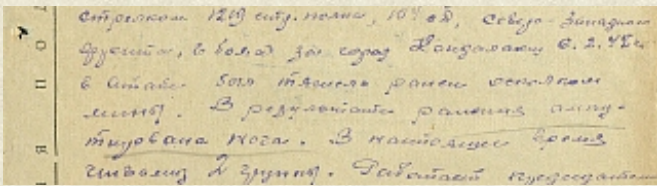 стрелком 1219 стр. полка, 16 сд, Северо-Западного
фронта, в боях за город 6.2.42 г.
в атаке был тяжело ранен осколком
мины. В результате ранения ампу-
тирована нога. В настоящее время
инвалид 2 группы. Работает председателем